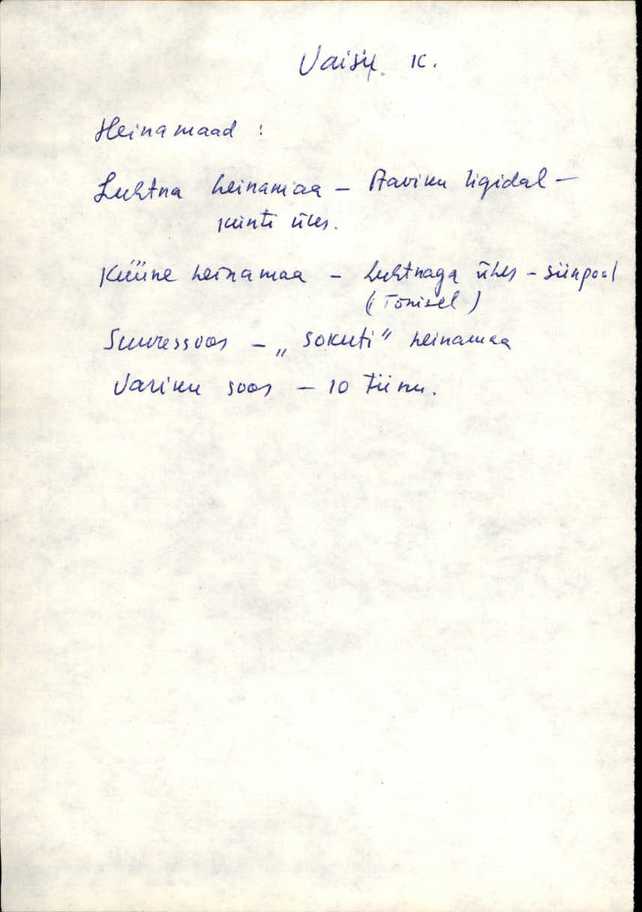 Vaisi k.
Heinamaad :
Luhtna heinamaa – Haviku ligidal –
kinti üles.
Küüne heinamaa – Luhtnaga ühes – siinpool
(Tõnisel)
Suuressoos – „Sokuti" heinamaa
Variku soos – 10 tiinu.